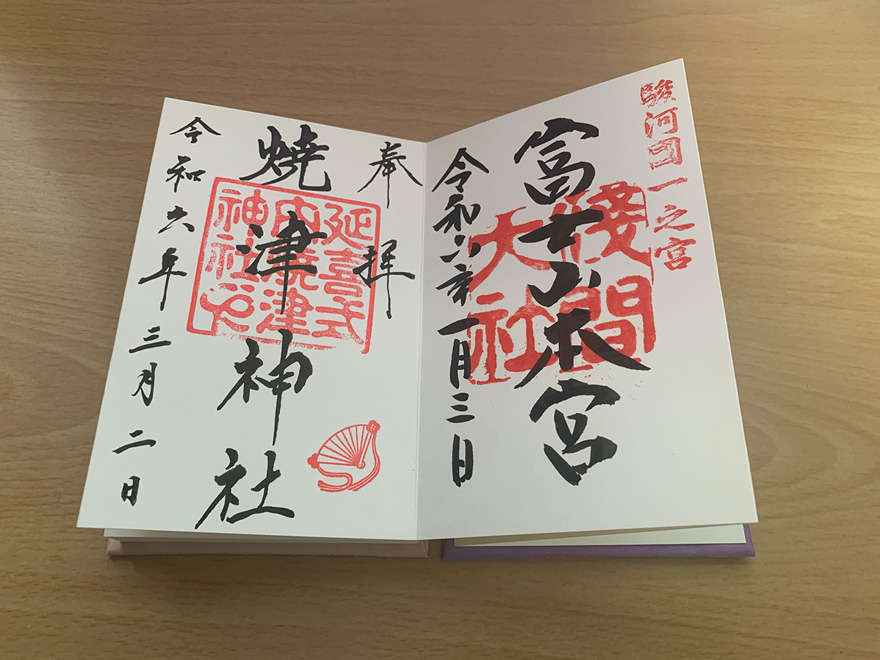 駿河国一之宮
富士山本宮
淺間
大社
令和六年一月三日
奉拝
焼津神社
延喜式
内焼津
神社
令和六年三月二日